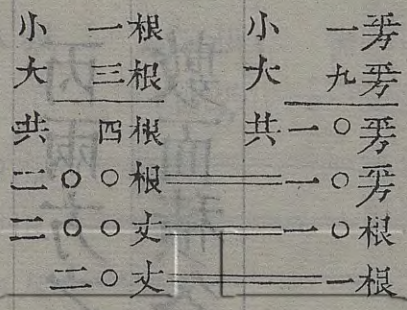 小 一根 小 一平方
大 三根 大 九平方
共 四根 共一〇平方
二〇〇根==一〇平方
二〇〇丈==一〇根
二〇丈==一根